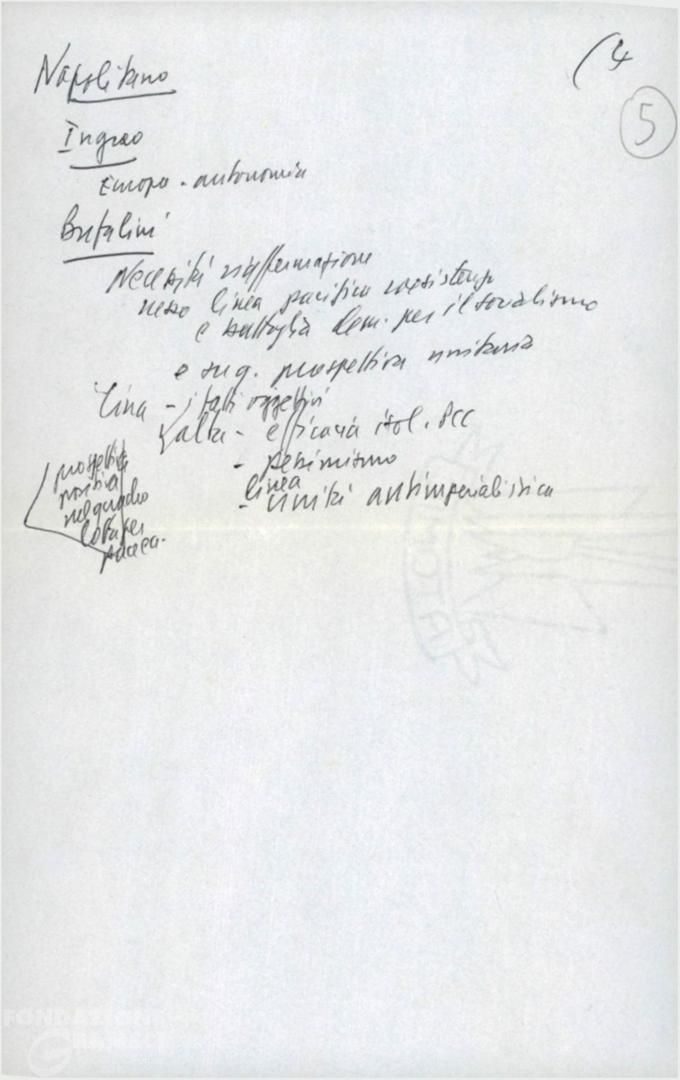 (4
5
Napolitano
Ingrao
Europa - autonomia
Bufalini
Necessità riaffermazione
nesso linea pacifica coesistenza
e battaglia dem. per il socialismo
e sua prospettiva unitaria
Cina - i fatti oggettivi
Yalta - efficacia isol. PCC
- pessimismo
linea
- unità antimperialistica
prospettiva
positiva
nel quadro
lotta per
pace.
FONDAZIONE
GRAMSCI